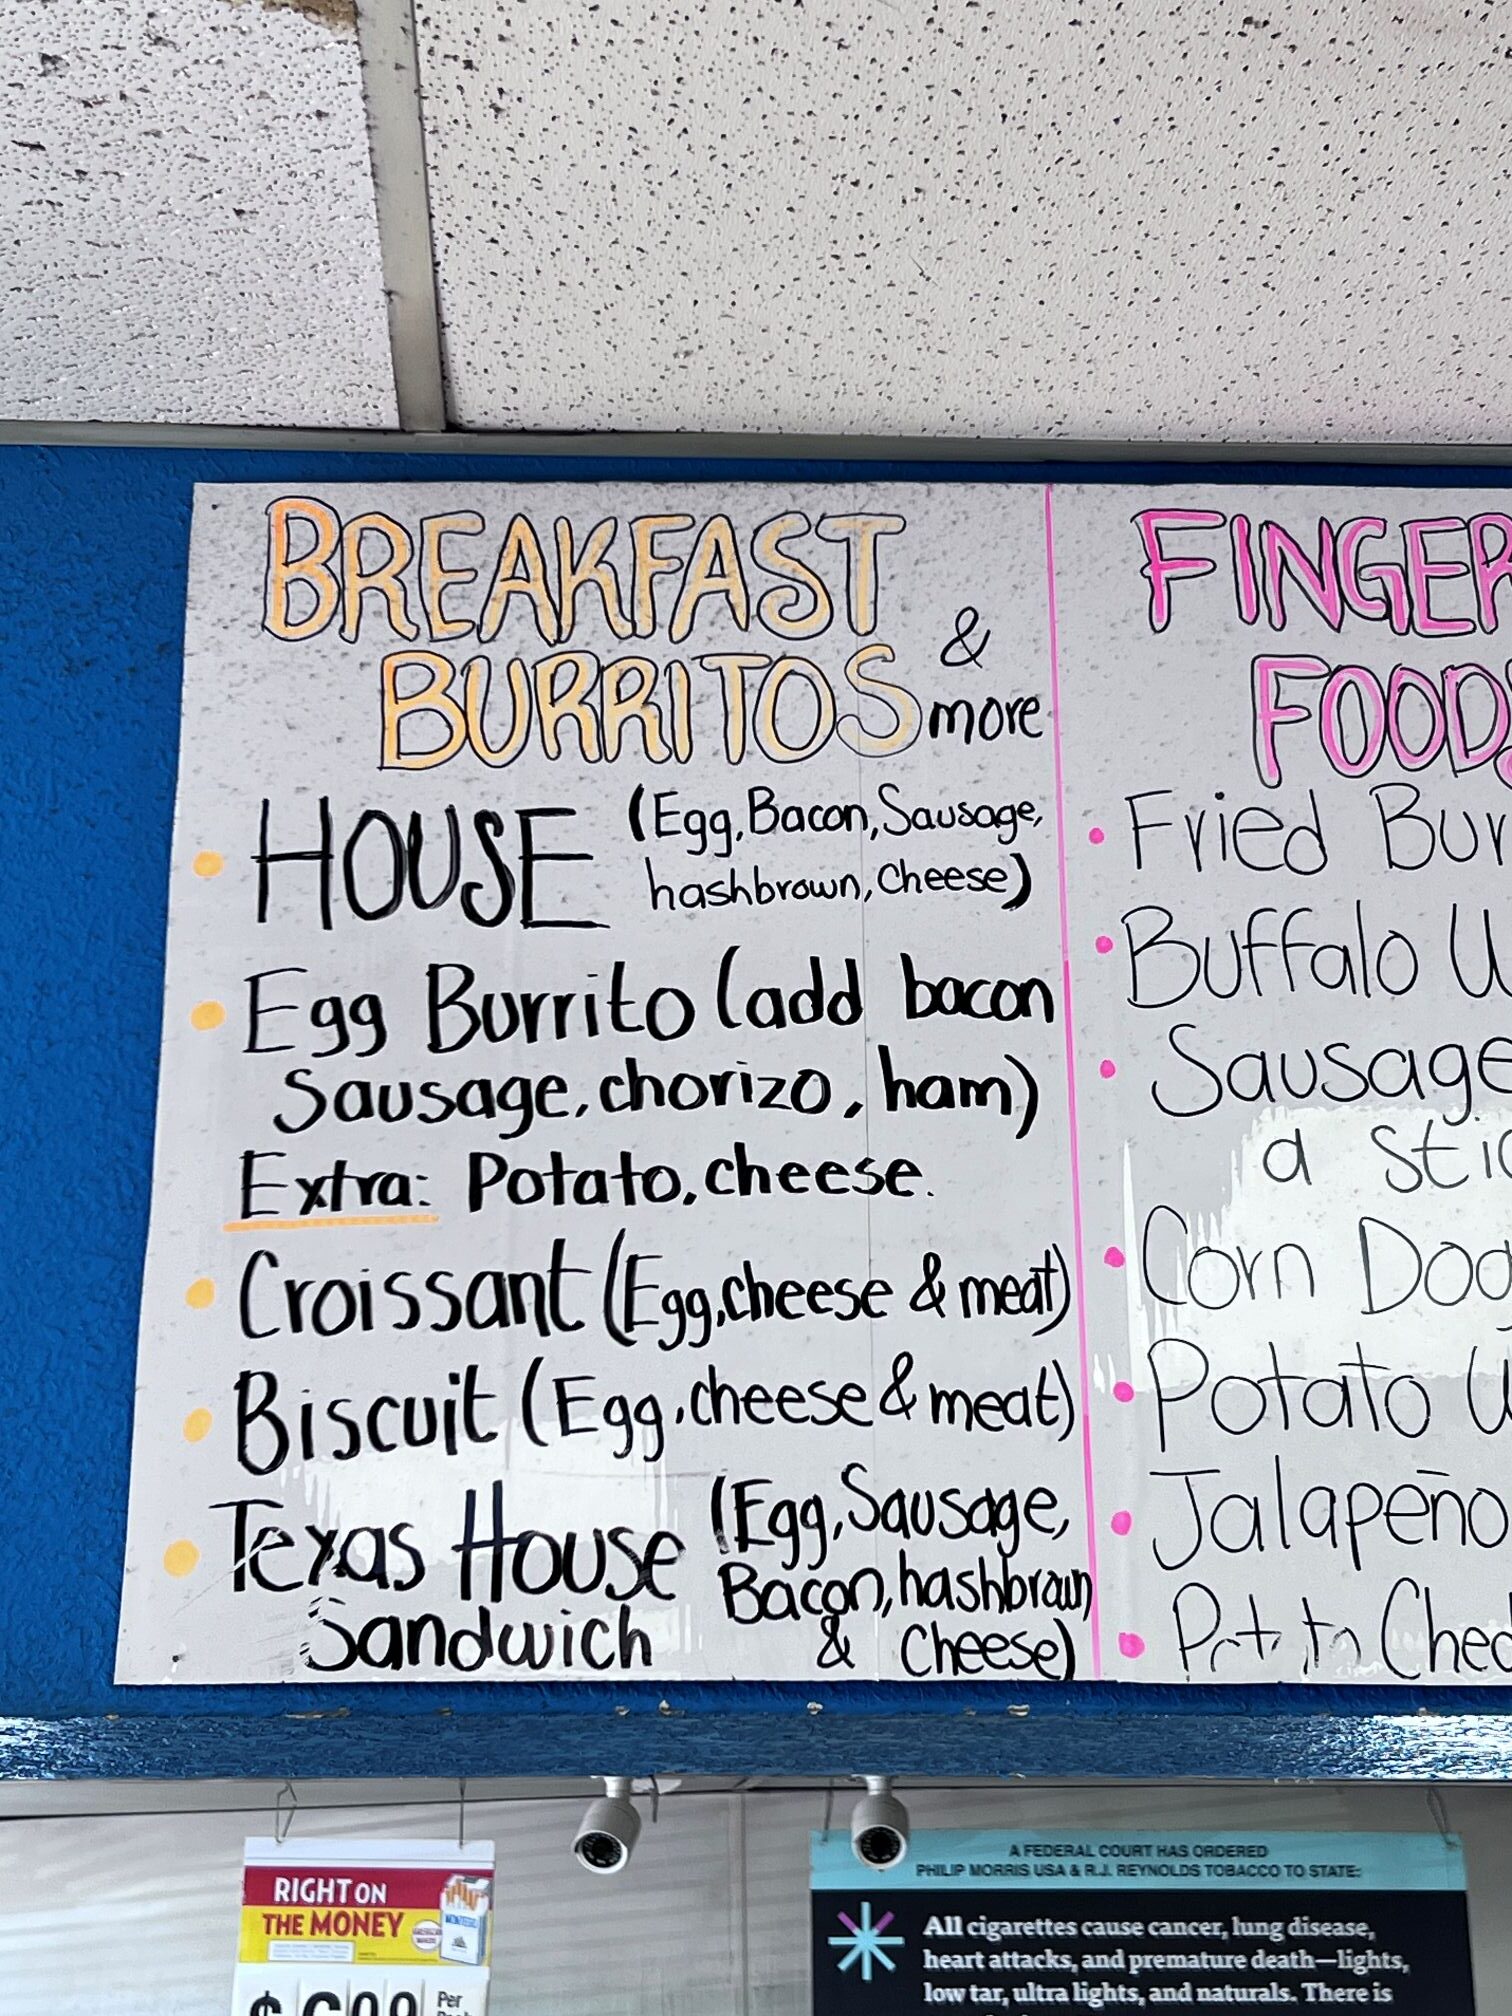 BREAKFAST
BURRITOS & more
HOUSE (Egg, Bacon, Sausage,
hashbrown, Cheese)
Egg Burrito (add bacon
Sausage, chorizo, ham)
Extra: Potato, cheese.
Croissant (Egg, cheese & meat)
Biscuit (Egg, cheese & meat)
Texas House (Egg, Sausage,
Sandwich Bacon, hashbrown
& Cheese)
FINGER
FOODS
Fried Bur
Buffalo W
Sausage
a Stic
Corn Dog
Potato W
Jalapeño
Chee
RIGHT ON
THE MONEY
$
Per
A FEDERAL COURT HAS ORDERED
PHILIP MORRIS USA & R.J. REYNOLDS TOBACCO TO STATE:
All cigarettes cause cancer, lung disease,
heart attacks, and premature death—lights,
low tar, ultra lights, and naturals. There is